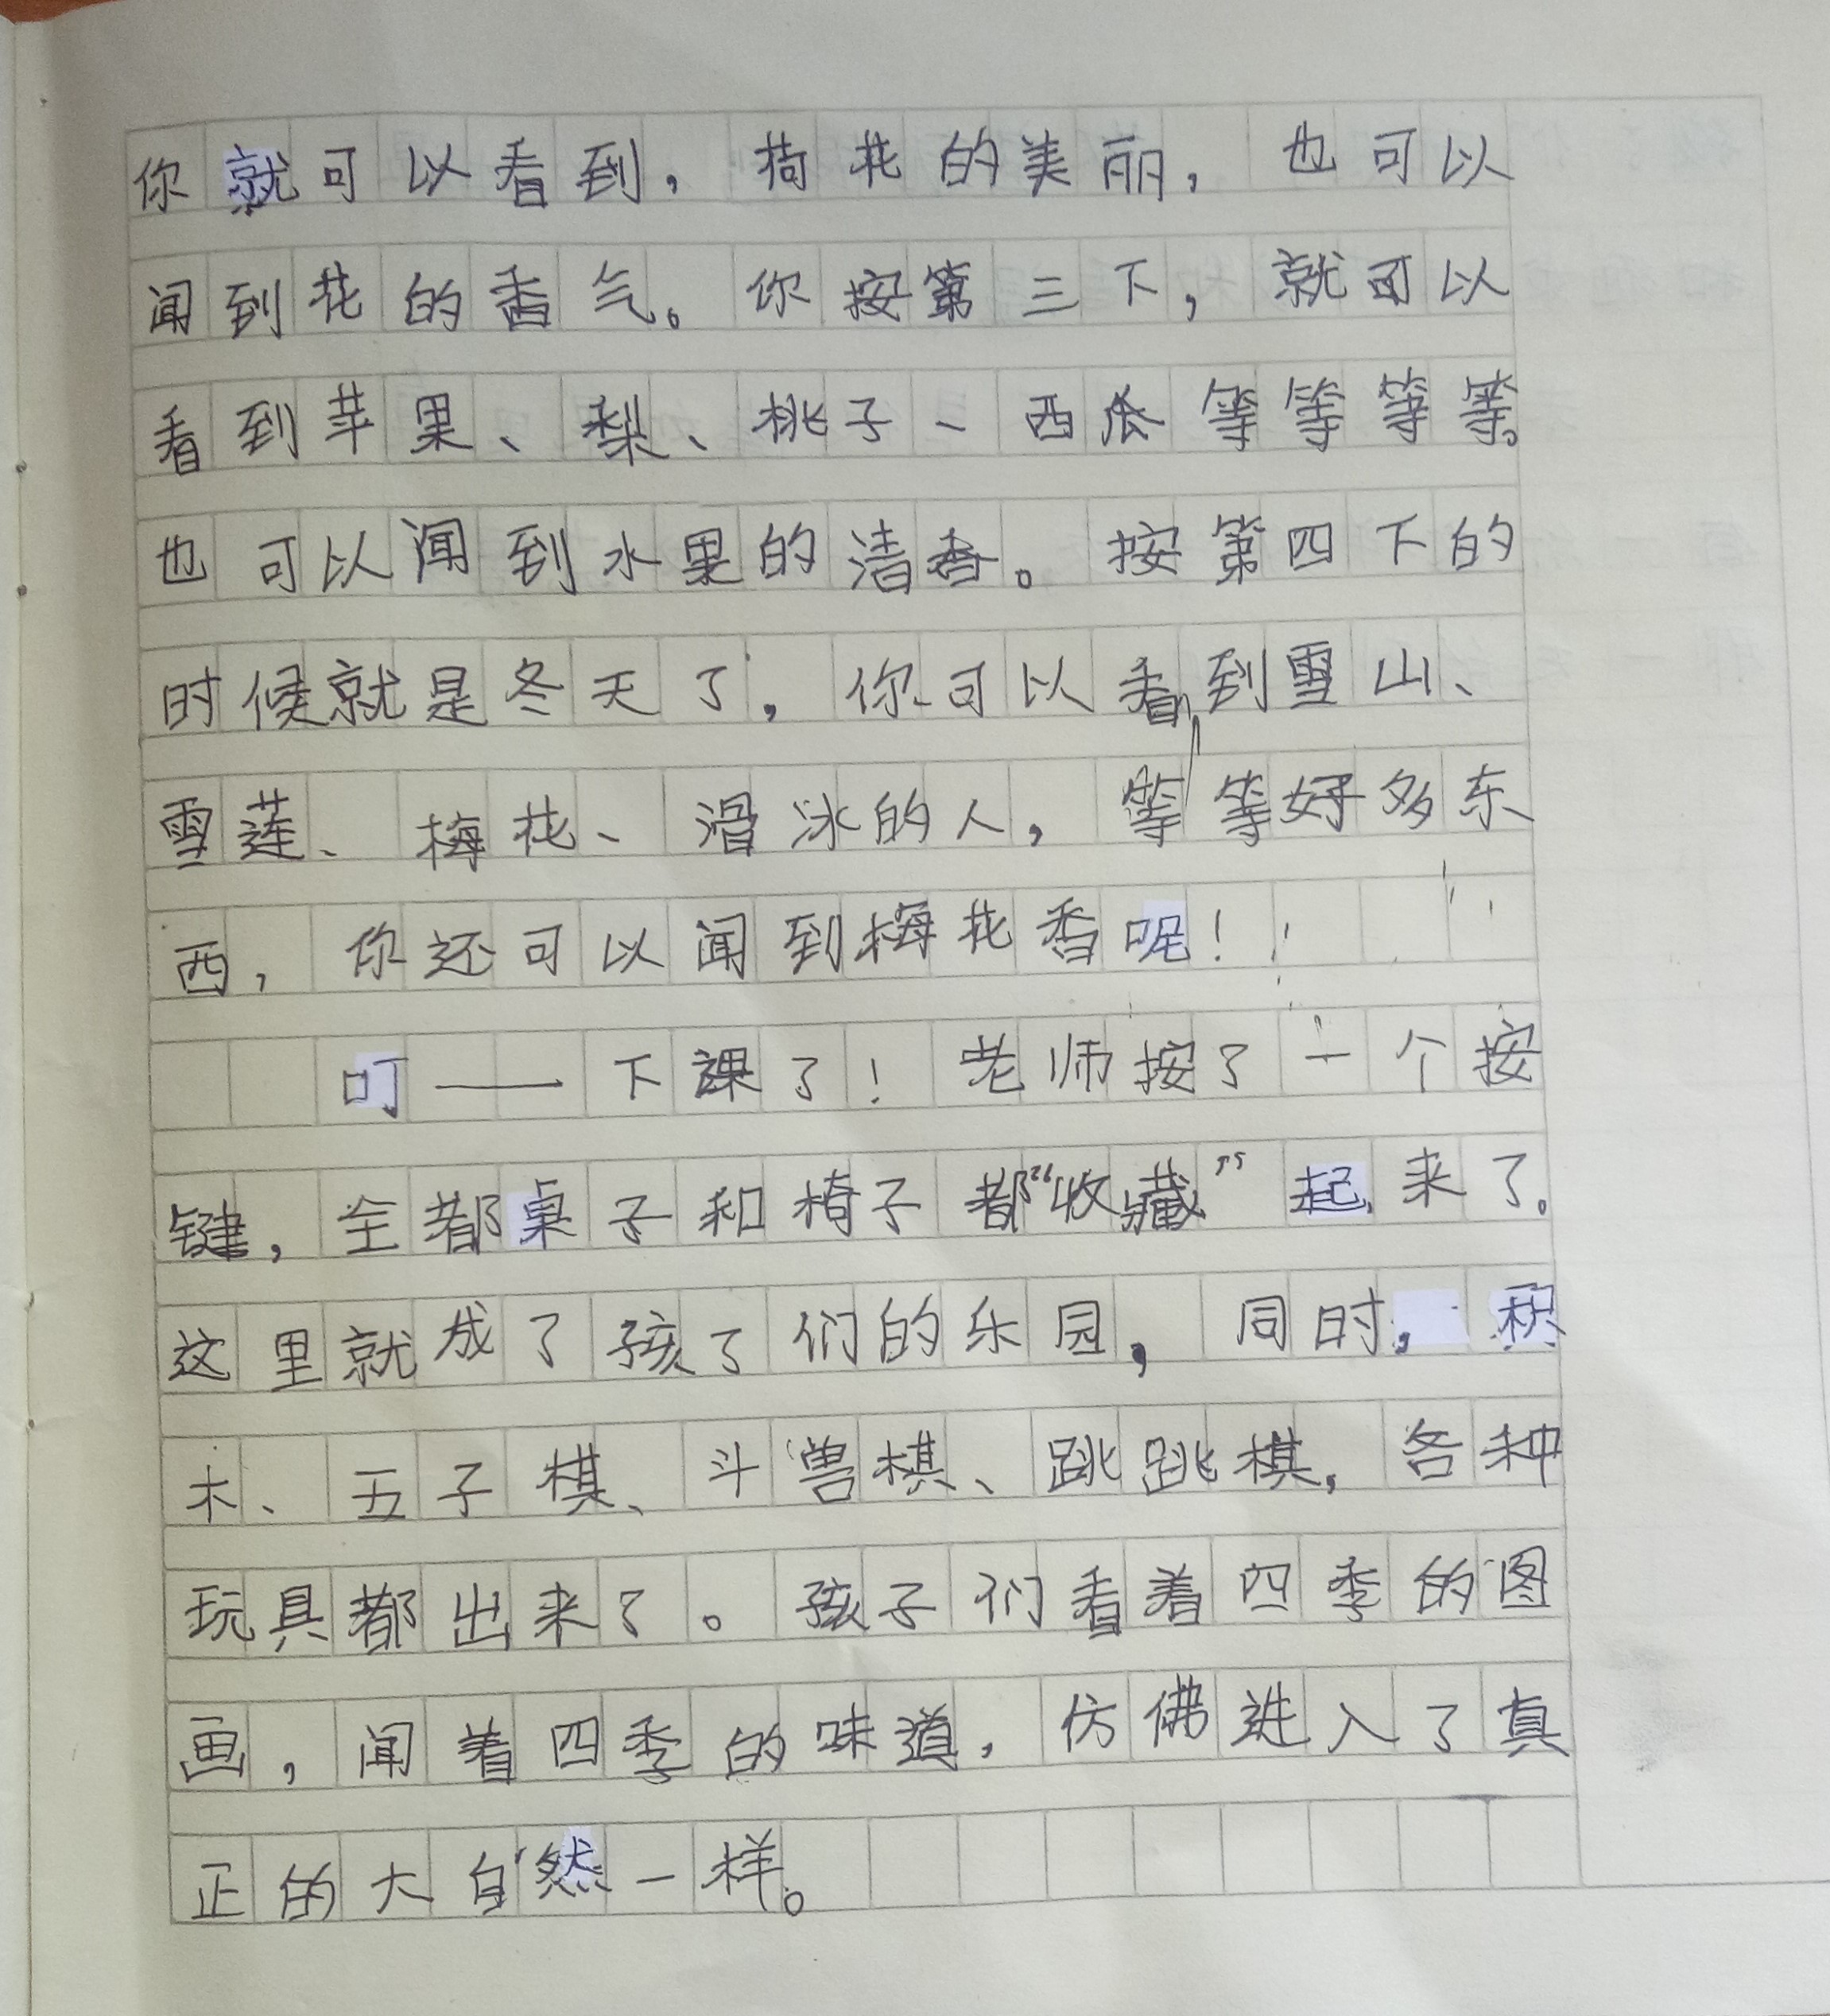 你就可以看到，荷花的美丽，也可以
闻到花的香气。你按第三下，就可以
看到苹果、梨、桃子、西瓜等等等等。
也可以闻到水果的洁香。按第四下的
时候就是冬天了，你可以看到雪山、
雪莲、梅花、滑冰的人，等等好多东
西，你还可以闻到梅花香呢！
叮——下课了！老师按了一个按
键，全都桌子和椅子都“收藏”起来了。
这里就成了孩了们的乐园，同时，积
木、五子棋、斗兽棋、跳跳棋，各种
玩具都出来了。孩子们看着四季的图
画，闻着四季的味道，仿佛进入了真
正的大自然一样。